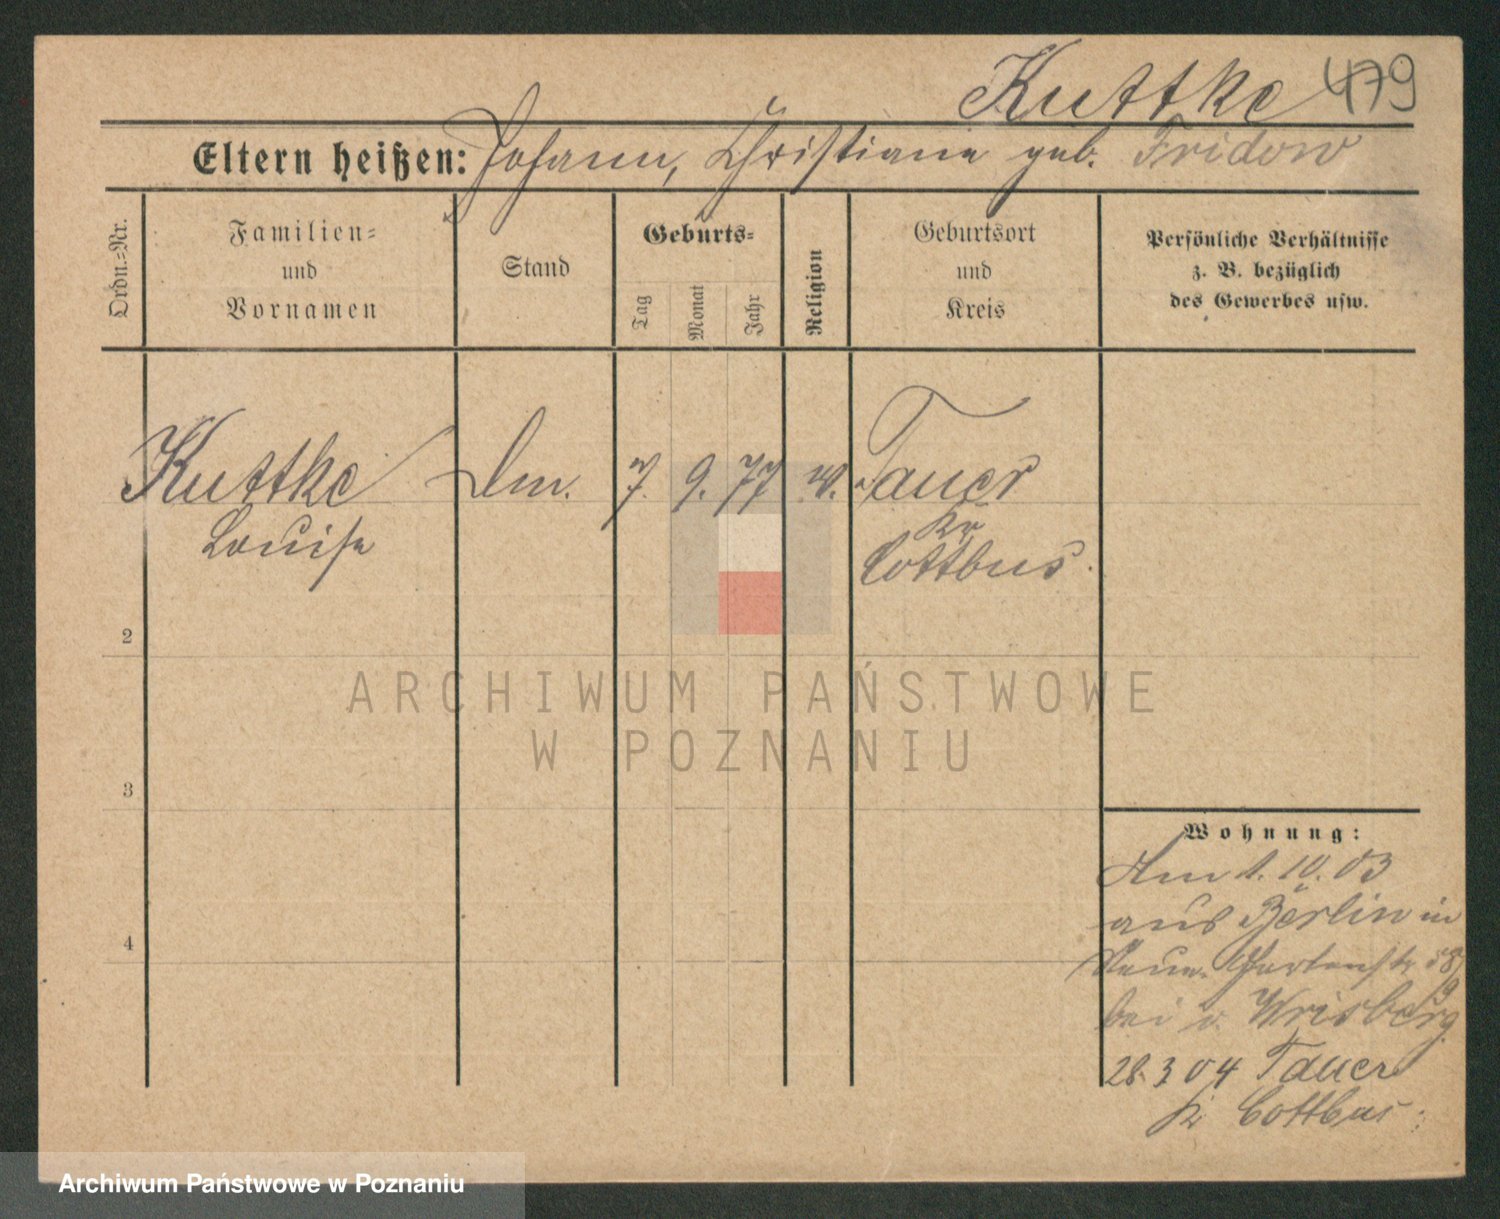 Kuttke 479
Eltern heißen: Johann, Christiane geb. Fridow
Ordn.=Nr.
Familien=
und
Vornamen
Stand
Geburts=
Tag
Monat
Jahr
Religion
Geburtsort
und
Kreis
Persönliche Verhältnisse
z. B. bezüglich
des Gewerbes usw.
Kuttke
Louise
7. 9. 77
Tauer
Kr
Cottbus.
2
3
4
ARCHIWUM PAŃSTWOWE
W POZNANIU
Wohnung:
Am 1. 10. 03
aus Berlin in
Neue Gartenstr 58/
9
bei v. Wrisberg.
28. 3 04 Tauer
Cottbus.
Archiwum Państwowe w Poznaniu